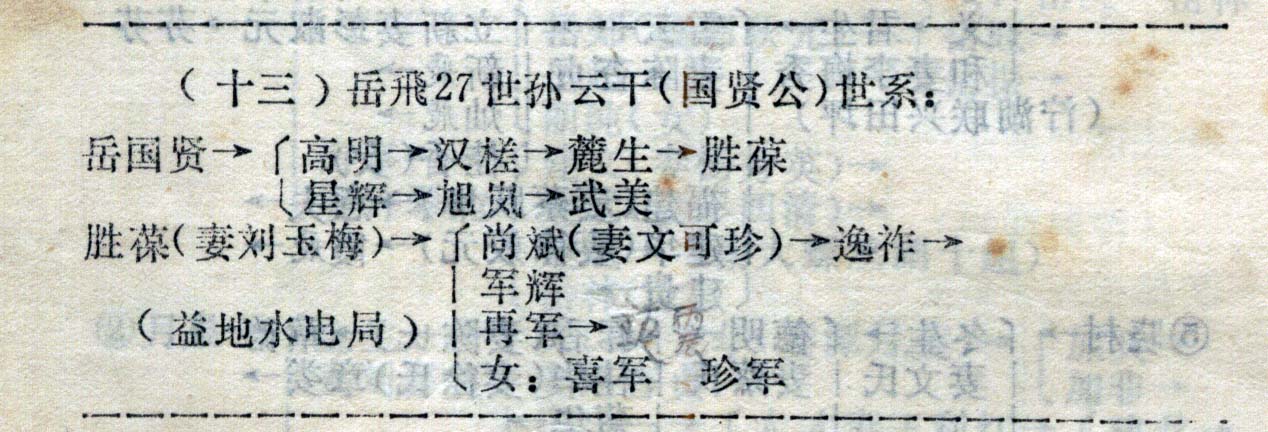 （十三）岳飛27世孙云干（国贤公）世系：
岳国贤→高明→汉槎→麓生→胜葆
星辉→旭岚→武美
胜葆（妻刘玉梅）→尚斌（妻文可珍）→逸祚→
军辉
（益地水电局）再军→震
女：喜军 珍军